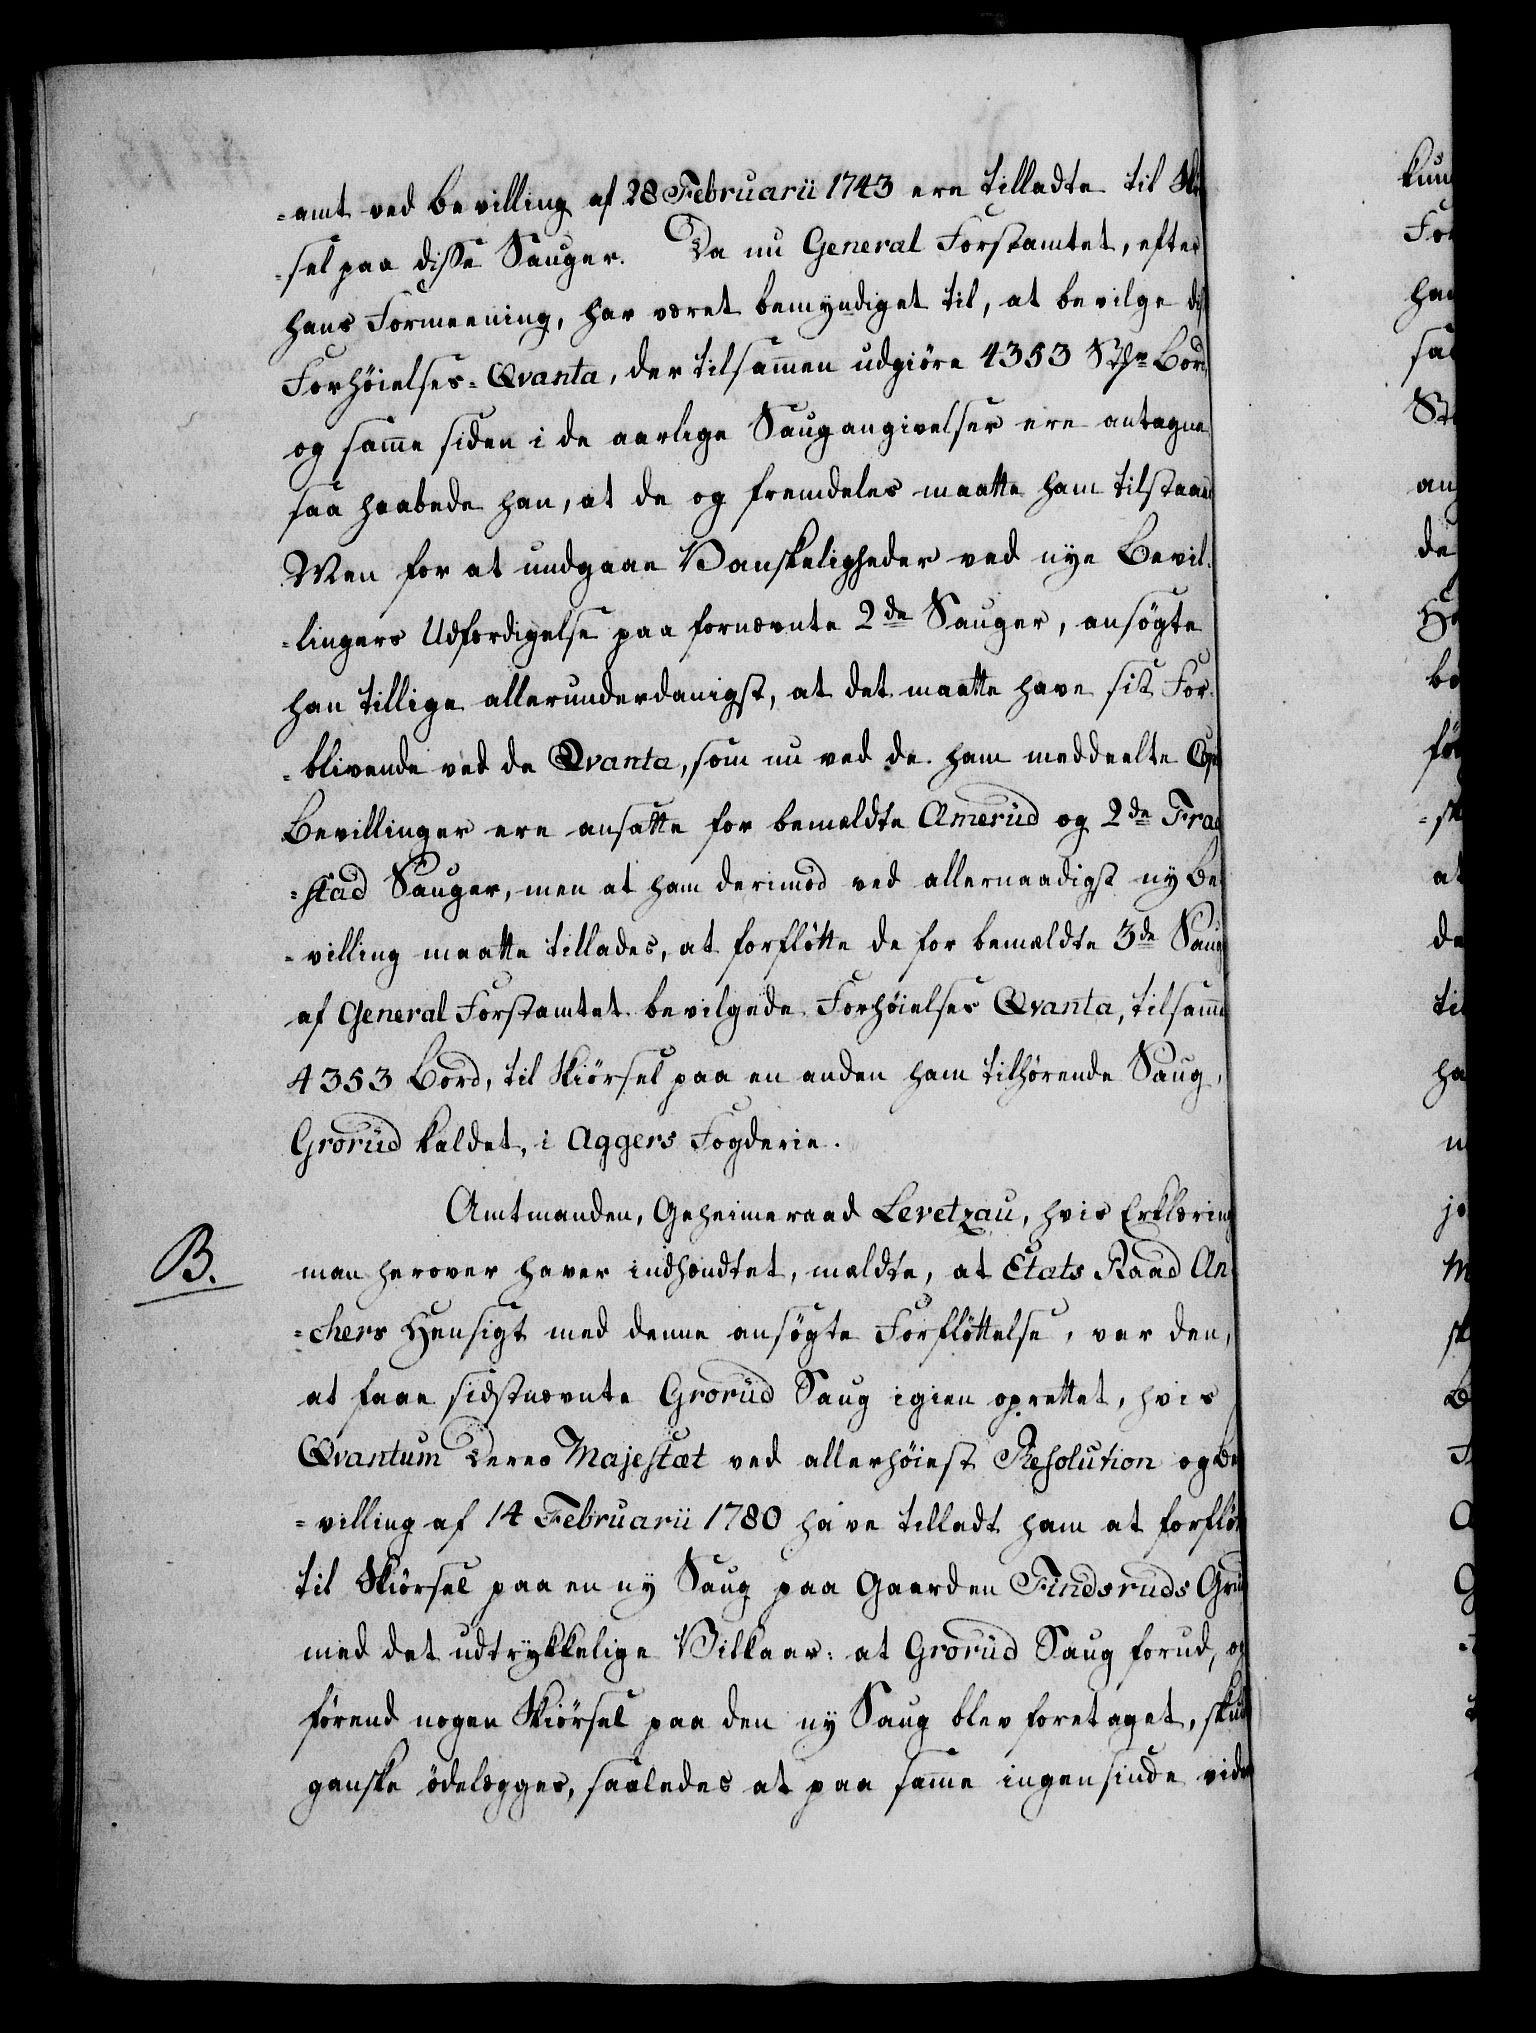 =amt ved Bevilling af 28 Februarii 1743 ere tilladte til Ski
=sel paa disse Sauger. Da nu General Forstamtet, efter
hans Formeening, har været bemyndiget til, at bevilge dis
Forhøielses-Qvanta, der tilsam̅en udgiøre 4353 Stkr Bord
og sam̅e siden i de aarlige Saugangivelser ere antagne
saa haabede han, at de og fremdeles maatte ham tilstaaes
Men for at undgaae Vanskeligheder ved nye Bevil-
=lingers Udfærdigelse paa fornævnte 2de Sauger, ansøgte
han tillige allerunderdanigst, at det maatte have sit For-
=blivende ved de Qvanta, som nu ved de ham meddeelte
Bevillinger ere ansatte for bemeldte Amerud og 2de Frag
=stad Sauger, men at ham derimod ved allernaadigst ny Be
=villing maatte tillades, at forflötte de for bemeldte 3de Saug
af General Forstamtet bevilgede Forhøielses Qvanta, tilsam̅e
4353 Bord, til Skiørsel paa en anden ham tilhørende Saug,
Grorud kaldet, i Aggers Fogderie.
Amtmanden, Geheimeraad Levetzau, hvis Erklæring
B. man herover haver indhændtet, meldte, at Etats Raad An
=chers Hensigt med denne ansøgte Forflöttelse, var den,
at faae sidstnævnte Grorud Saug igien oprettet, hvis
Qvantum Deres Majestæt ved allerhøiest Resolution og Be
=villing af 14 Februarii 1780 have tilladt ham at forflöt
til Skiørsel paa en ny Saug paa Gaarden Findsruds Gru
med det udtrykkelige Vilkaar: at Grorud Saug forud, og
førend nogen Skiørsel paa den ny Saug blev foretaget, skul
ganske ödelegges, saaledes at paa sam̅e ingensinde vide